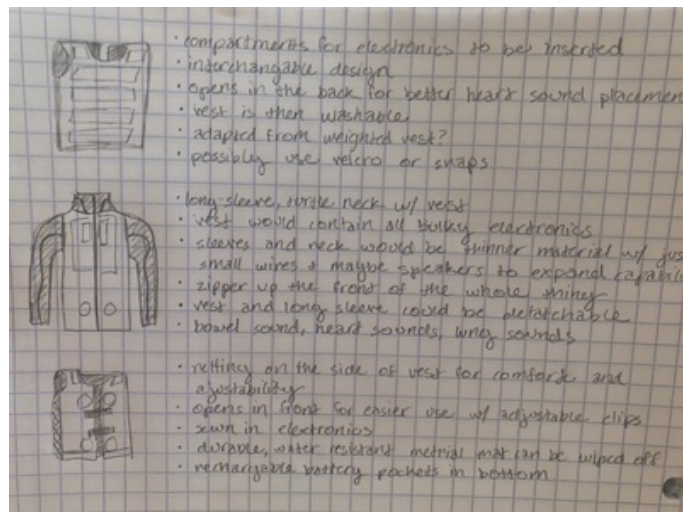 · compartments for electronics to be inserted
· interchangable design
· opens in the back for better heart sound placemen
· vest is then washable
· adapted from weighted vest?
· possibly use velcro or snaps
· long sleeve, turtle neck w/ vest
· vest would contain all bulky electronics
· sleeves and neck would be thinner material w/ jus
small wires & maybe speakers to expand capabili
· zipper up the front of the whole thing
· vest and long sleeve could be detatchable
· bowel sound, heart sounds, lung sounds
· netting on the side of vest for comfort and
ajustability
· opens in front for easier use w/ adjustable clips
· sewn in electronics
· durable, water resistant metrial that can be wiped off
· rechargable battery pockets in bottom